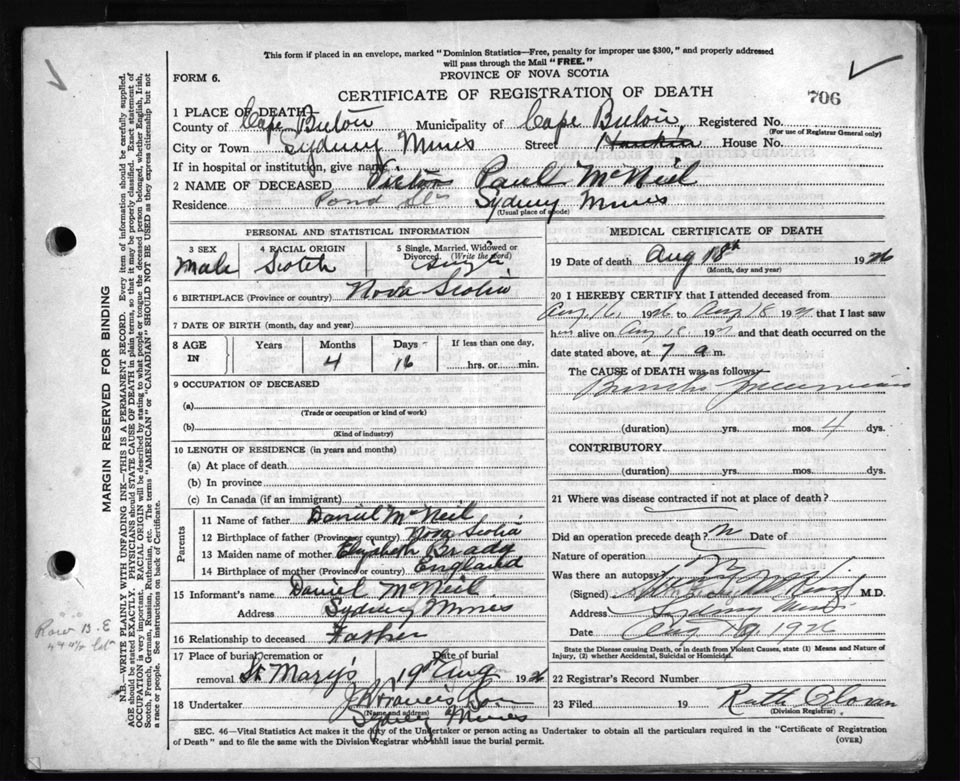 This form if placed in an envelope, marked "Dominion Statistics—Free, penalty for improper use $300," and properly addressed
will pass through the Mail "FREE."
FORM 6.
PROVINCE OF NOVA SCOTIA
CERTIFICATE OF REGISTRATION OF DEATH
706
1 PLACE OF DEATH
County of Cape Breton Municipality of Cape Breton Registered No.
(For use of Registrar General only)
City or Town Sydney Mines Street House No.
If in hospital or institution, give name
2 NAME OF DECEASED Victor Paul McNeil
Residence Pond Sydney Mines
(Usual place of abode)
PERSONAL AND STATISTICAL INFORMATION
3 SEX 4 RACIAL ORIGIN 5 Single, Married, Widowed or
Divorced. (Write the word)
Male Scotch Single
6 BIRTHPLACE (Province or country) Nova Scotia
7 DATE OF BIRTH (month, day and year)
8 AGE IN Years Months Days If less than one day,
4 16 hrs. or min.
9 OCCUPATION OF DECEASED
(a)
(Trade or occupation or kind of work)
(b)
(Kind of industry)
10 LENGTH OF RESIDENCE (in years and months)
(a) At place of death
(b) In province
(c) In Canada (if an immigrant)
Parents
11 Name of father Daniel McNeil
12 Birthplace of father (Province or country) Nova Scotia
13 Maiden name of mother Elizabeth Brady
14 Birthplace of mother (Province or country) England
15 Informant's name Daniel McNeil
Address Sydney Mines
16 Relationship to deceased Father
17 Place of burial, cremation or Date of burial
removal St Mary's 19th Aug 1926
18 Undertaker J Francis
(Name and address)
Sydney Mines
MEDICAL CERTIFICATE OF DEATH
19 Date of death Aug 18th 1926
(Month, day and year)
20 I HEREBY CERTIFY that I attended deceased from
Aug 16, 1926 to Aug 18 192 that I last saw
him alive on Aug 18 192 and that death occurred on
date stated above, at 7 a m.
The CAUSE of DEATH was as follows:
Broncho Pneumonia
(duration) yrs. mos. 4 dys.
CONTRIBUTORY
(duration) yrs. mos. dys.
21 Where was disease contracted if not at place of death?
Did an operation precede death? No Date of
Nature of operation
Was there an autopsy? No
(Signed) M.D.
Address Sydney Mines
Date Aug 19, 1926
State the Disease causing Death, or in death from Violent Causes, state (1) Means and Nature of
Injury, (2) whether Accidental, Suicidal or Homicidal.
22 Registrar's Record Number
23 Filed 19 Ruth
(Division Registrar)
SEC. 46—Vital Statistics Act makes it the duty of the Undertaker or person acting as Undertaker to obtain all the particulars required in the "Certificate of Registration
of Death" and to file the same with the Division Registrar who shall issue the burial permit.
(OVER)
MARGIN RESERVED FOR BINDING
N.B.—WRITE PLAINLY WITH UNFADING INK—THIS IS A PERMANENT RECORD. Every item of information should be carefully supplied.
AGE should be stated EXACTLY. PHYSICIANS should STATE CAUSE OF DEATH in plain terms, so that it may be properly classified. Exact statement of
OCCUPATION is very important. RACIAL ORIGIN will be described by stating to what people or tongue the deceased person belonged, whether English, Irish,
Scotch, French, German, Russian, Ruthenian, etc. The terms "AMERICAN" or "CANADIAN" SHOULD NOT BE USED as they express citizenship but not
a race or people. See instructions on back of Certificate.
Row B.E